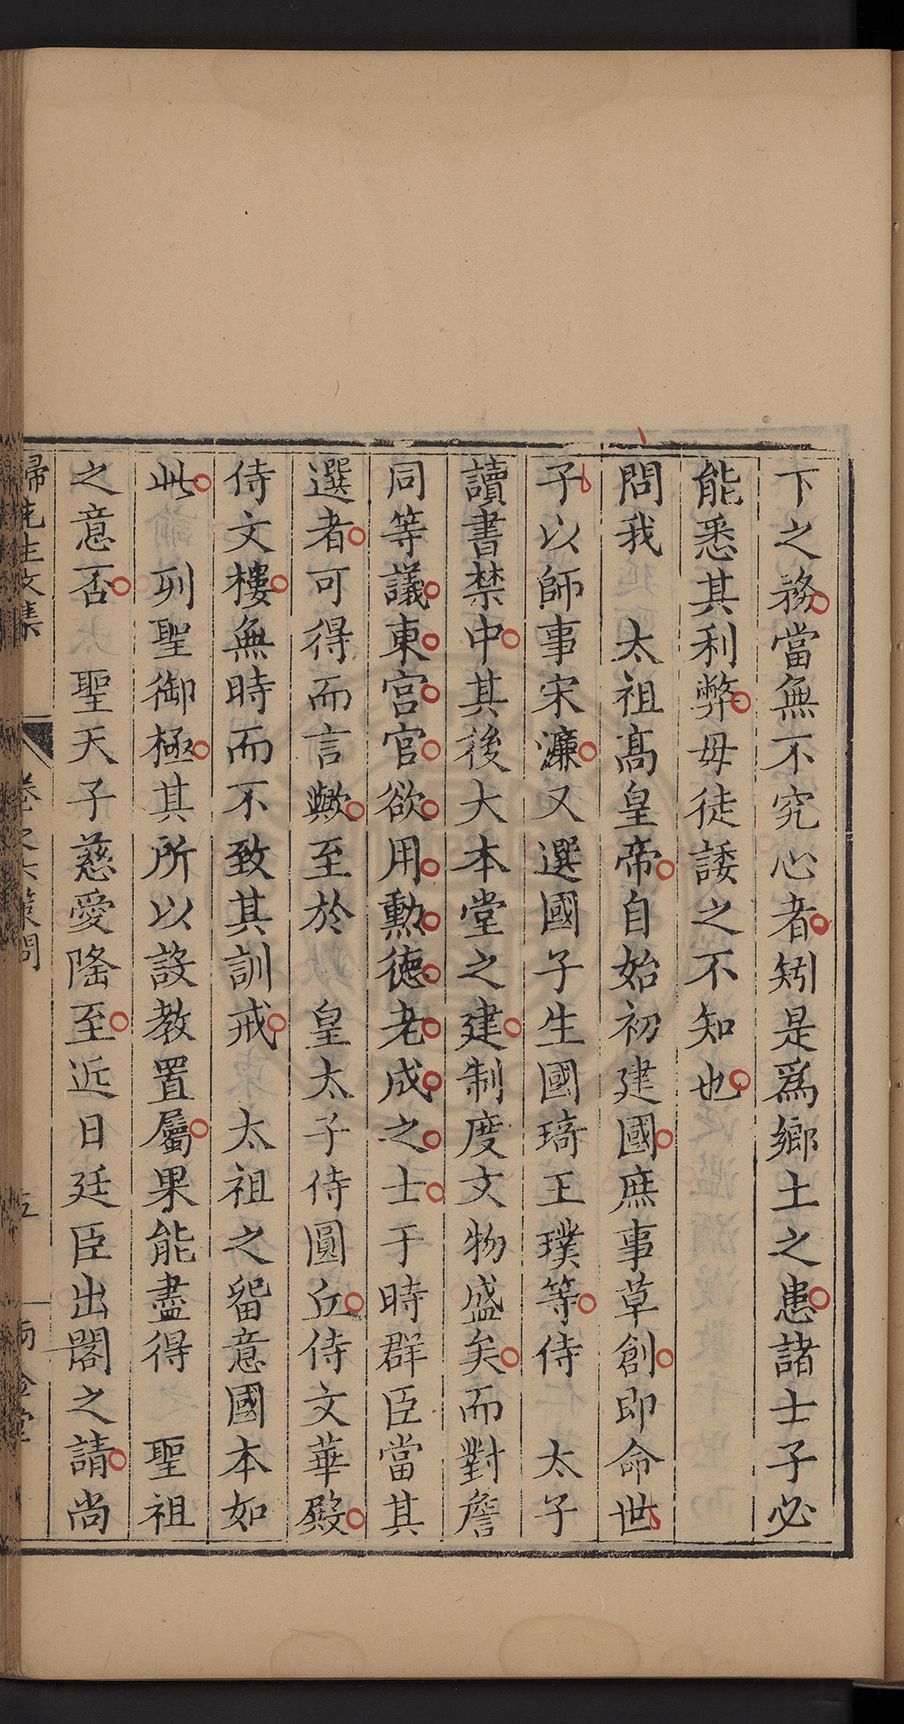 下之務當無不究心者矧是爲鄉土之患諸士子必
能悉其利弊毋徒諉之不知也
問我　太祖高皇帝自始初建國庶事草創即命世
子以師事宋濂又選國子生國琦王璞等侍　太子
讀書禁中其後大本堂之建制度文物盛矣而對詹
同等議東宮官欲用勳德老成之士于時群臣當其
選者可得而言歟至於　皇太子侍圓丘侍文華殿
侍文樓無時而不致其訓戒　太祖之留意國本如
此　列聖御極其所以設教置屬果能盡得　聖祖
之意否　聖天子慈愛隆至近日廷臣出閣之請尚